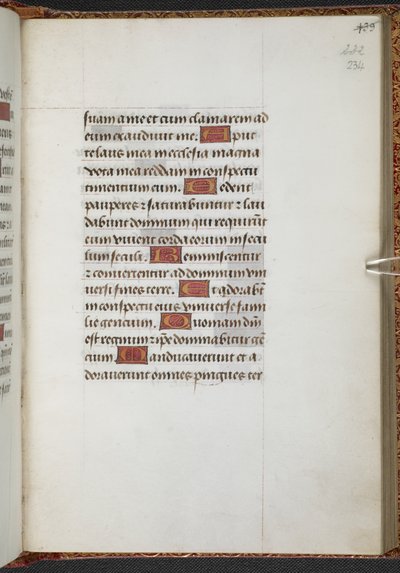 439
222
234
suam a me et cum clamarem ad
eum exaudiuit me. Apud
te laus mea in ecclesia magna
vota mea reddam in conspectu
timentium eum. Edent
pauperes ⁊ saturabuntur ⁊ lau
dabunt dominum qui requirūt
eum viuent corda eorum in secu
lum seculi. Reminiscentur
⁊ conuertentur ad dominum vni
uersi fines terre. Et adorabūt
in conspectu eius vniuerse fami
lie gencium. Quoniam dn̄i
est regnum ⁊ ip̄e dominabitur gē
cium. Manducauerunt et a
dorauerunt omnes pingues ter